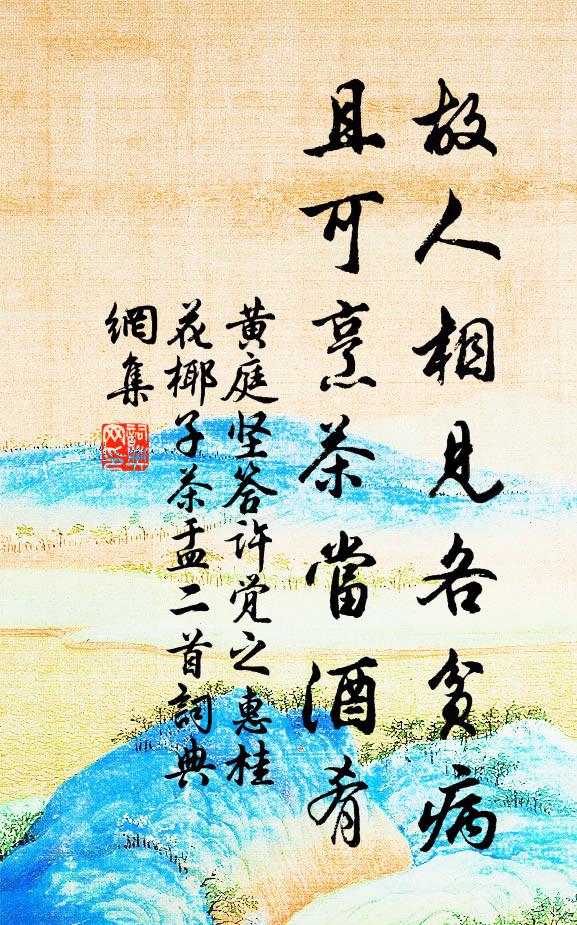 故人相見各貧病
且可烹茶當酒肴
黄庭坚答许觉之惠桂
花椰子茶盂二首詞典
網集